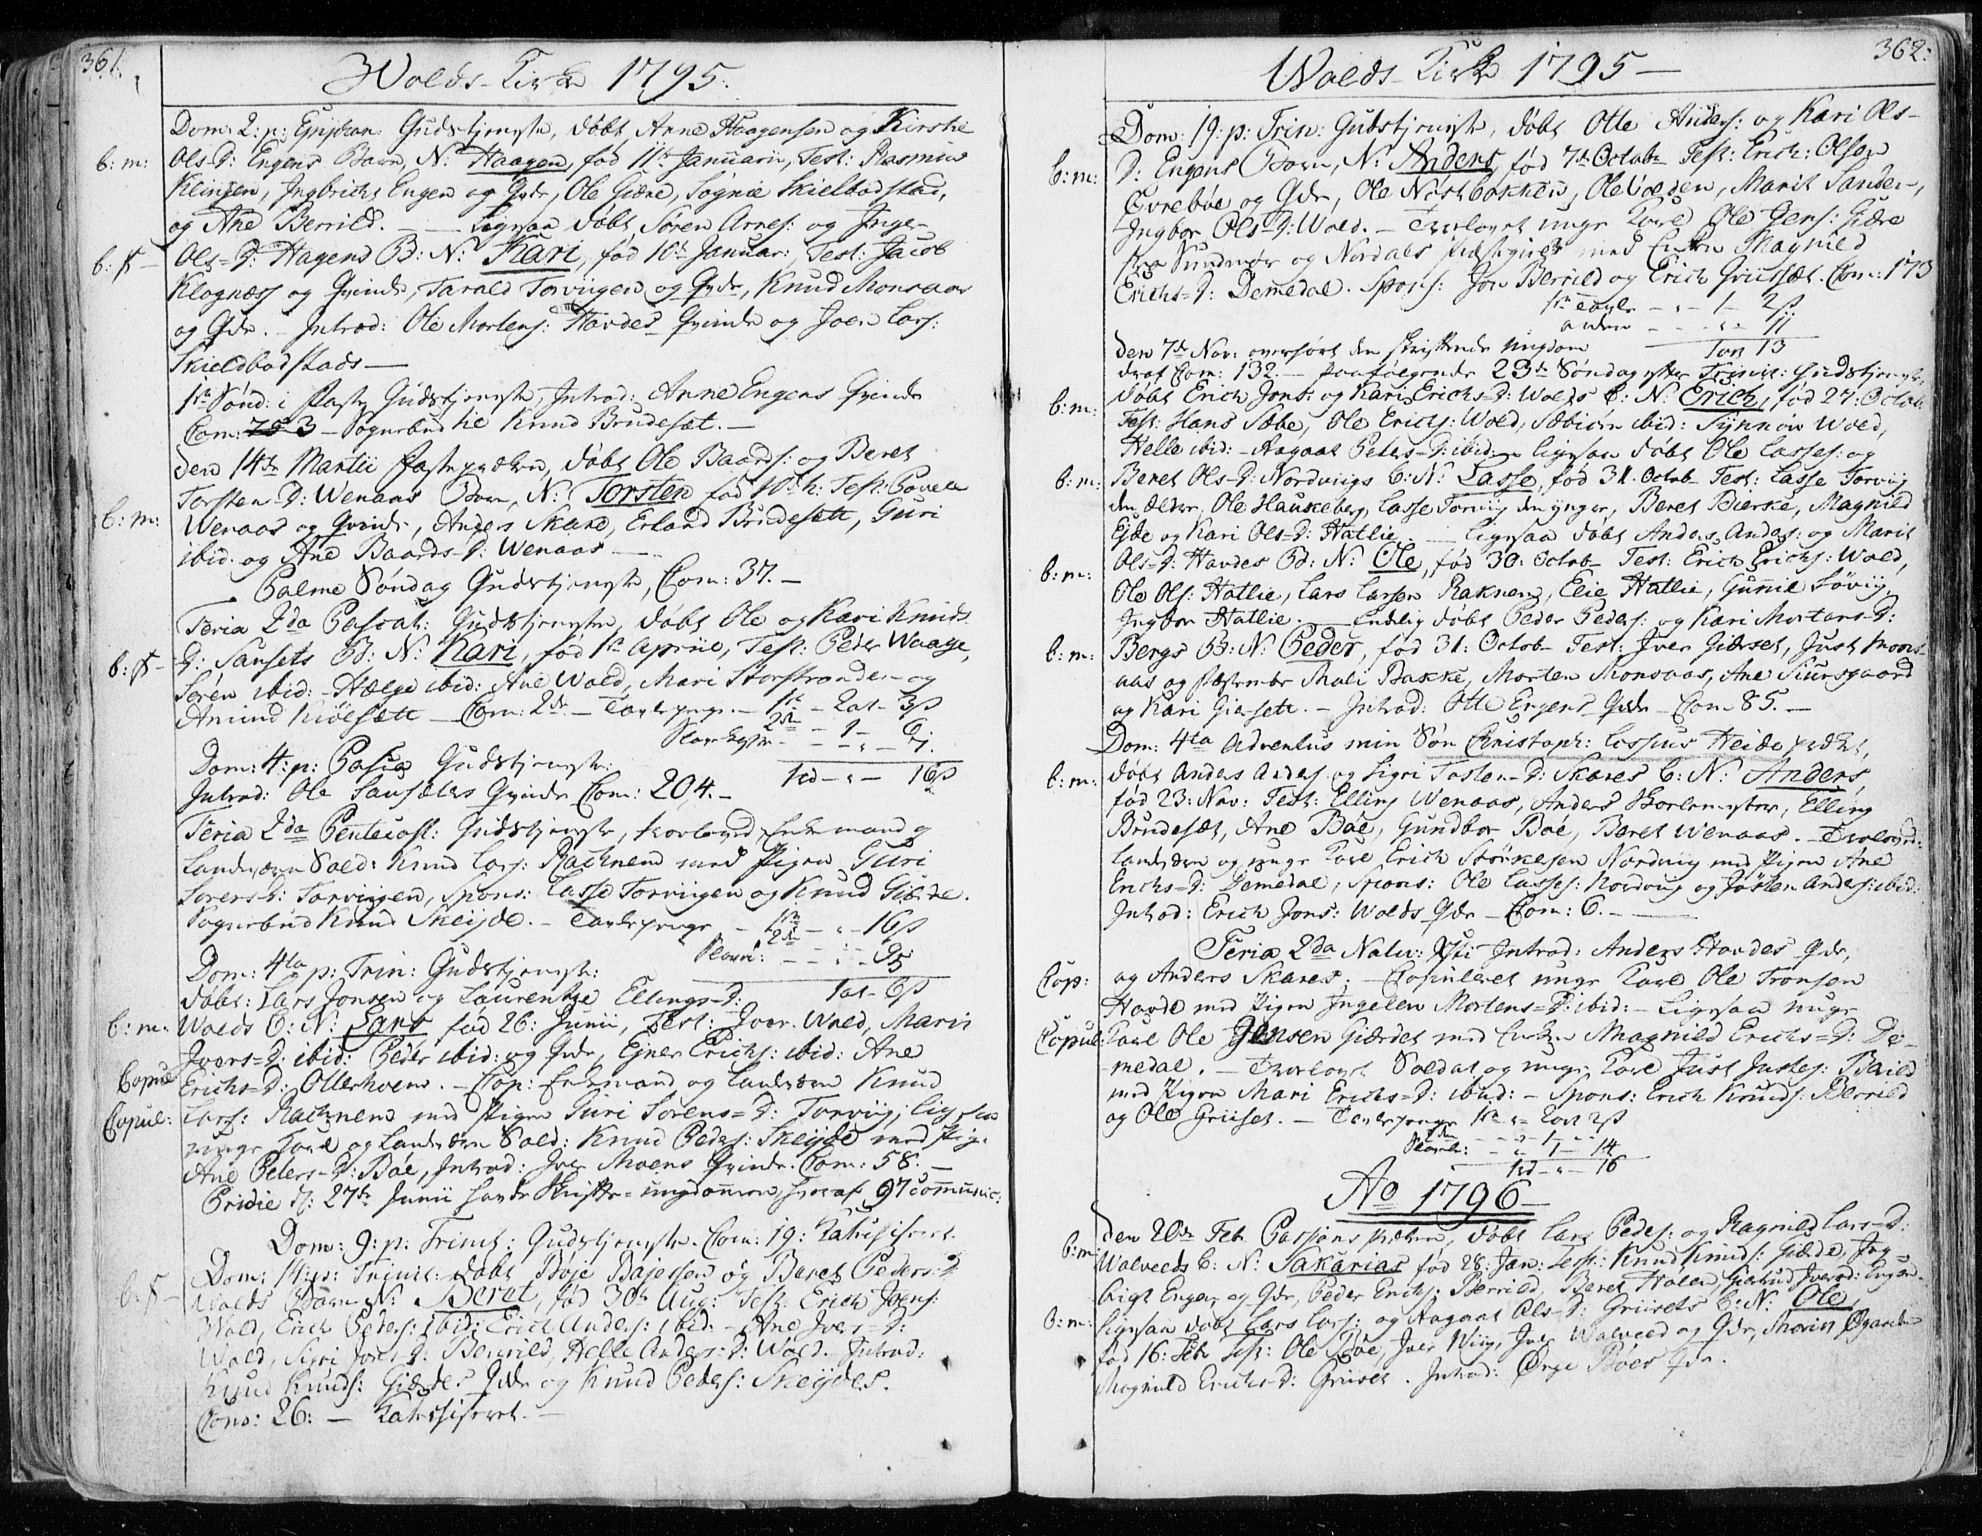 361.
Wolds-Kirke 1795.
Dom: 2: p: Epiphan: Gudstjeneste, døbt Arne Haagensen og Kirstie
b: m: Ols-D: Engens Barn, N: Haagen, fød 11te Januarii, Test: Rasmus
Klingen, Ingbricht Engen og Qvde, Ole Giære, Søgnie Skielbostad,
og Ane Berrild. — Ligesaa døbt Søren Arnes: og Inge-
b: p— Ols-D: Hagens B: N: Kari, fød 10te Januar: Test: Jacob
Klognæss og Qvinde, Tarald Torvigen og Qvde, Knud Monsaas
og Qvde. — Introd: Ole Mortens: Havdes Qvinde og Joen Lars:
Skieldbostads —
1te Sønd: i Faste Gudstjeneste, Introd: Arne Engens Qvinde
Com: 3 — Sognebud hie Knud Brudeset. —
Den 14de Martii Fasteprædken, døbt Ole Baards: og Beret
Torsten-D: Wenaas Barn, N: Torsten fød 10de h: Test: Povel
b: m: Wenaas og Qvinde, Anders Skare, Erland Brudesett, Guri
ibid. og Ane Baards-D: Wenaas —
Palme Søndag Gudstjeneste, Com: 37. —
Feria 2da Pascat: Gudstjeneste, døbt Ole og Kari Knuds
b: p— D: Sansets B: N: Kari, fød 1te Aprile, Test: Peder Waage,
Søren ibid: Hælge ibid: Ane Wold, Mari Storstranden og
Amund Kiølsett — Com: 2de. — Tavlepenge. — 1te - 2ort - 3ß
2de - 1 - 6
Dom: 4: p: Pasca Gudstjeneste:
1rd - „ - 16ß
Introd: Ole Sansætes Qvinde Com: 204. —
Feria 2da Pentecost: Gudstjeneste, troloved Enkemand og
Landværn Sold: Knud Lars: Rachnem med Pigen Guri
Sorens-D: Torvigen, Spons: Lasse Torvigen og Knud Giærde.
Sognebud Knud Skeyde. — Tavlepenge - 1te - „ - 16ß
Dom: 4ta p: Trin: Gudstjeneste:
1ort - 6ß
døbt: Lars Jonsen og Laurentze Ellings-D:
b: m: Wolds B: N: Lars fød 26: Junii, Test: Iver Wold, Marit
Ivers-D: ibid: Peder ibid: og Qvde, Ejner Erichs: ibid: Ane
Copul Erichs-D: Otterhoem. — Cop: Enkemand og Landværn Knud
Copul: Lars: Rachnem med Pigen Guri Sorens-D: Torviig, Ligesaa
unge Karl og Landværn Sold: Knud Peders: Skeyde med Pig:
Ane Peters-D: Bøe, Introd: Iver Moens Qvinde. Com: 58. —
Pridie d: 27de Junii havde Skrifte-ungdommen, hvoraf 97 communic:
Dom: 9: p: Trinit: Gudstjeneste. Com: 19: Katechiseret.
Dom: 14: p: Trinit: døbt Boje Bajersen og Beret Peders-D
b: p— Wolds Barn N: Beret, fød 30te Aug: Test: Erich Joens:
Wold, Erich Peders: ibid: Erich Anders: ibid: Ane Ivers-D:
Wold, Sigri Ivers-D: Berrild, Helle Anders-D: Wold. Introd:
Knud Knuds: Giærdes Qvde og Knud Peders: Skeydes.
Com: 26: — Katechiseret. —
362:
Wolds-Kirke 1795 —
Dom: 19: p: Trin: Gudstjeneste, døbt Otte Anders: og Kari Ols-
b: m: D: Engens Barn, N: Anders, fød 7de Octob- Test: Erich: Olsen
Øvrebøe og Qvde, Ole Nostbakken, Ole Volden, Marit Sanden,
Ingbor Ols-D: Wold. — Trolovet unge Karl Ole Jens: Giære
fra Sundmør og Nordals Præstegield med Enken Magnild
Erichs-D: Demedal. Spons: Jon Berrild og Erich Griisset. Com: 173
1te Tavle - „ - 1 - 2ß
anden - - „ - 11
Den 7de Nov: overhørt den skriftende Ungdom Tor 13
deraf Com: 132 — Paafølgende 23de Søndag efter Trinit: Gudstjeneste,
b: m: døbt Erich Jons: og Kari Erichs-D: Wolds B: N: Erich, fød 27: Octob:
Test: Hans Søbe, Ole Erichs: Wold, Sæbiørn ibid: Synnøv Wold,
Helle ibid: Aagaat Peters-D: ibid: — Ligesaa døbt Ole Lasses: og
b: m: Beret Ols-D: Nordviigs B: N: Lasse, fød 31. Octob- Test: Lasse Torviig
den ælder, Ole Haukeberg, Lasse Torviig den ynger, Beret Bierke, Magnild
Ejde og Kari Ols-D: Hatlie. — Ligesaa døbt Anders Anders: og Marit
b: m: Ols-D: Havdes B: N: Ole, fød 30: Octob- Test: Erich Erichs: Wold,
Ole Ols: Hatlie, Lars Larsen Raknem, Elie Hatlie, Gunnil Løvig,
Ingbor Hatlie. — Endelig døbt Peder Peders: og Kari Mortens-D:
b: m: Bergs B: N: Peder, fød 31: Octob- Test: Iver Giærset, Just Mons-
aas og Mali Bakke, Morten Monsaas, Ane Siursgaard
og Kari Giersett. — Introd: Otte Engens Qvde — Com: 85. —
Dom: 4ta Adventus min Søn Christoph: Lossius Heide prædket,
b: m: døbt Anders Anders: og Sigri Tosten-D: Skares B: N: Anders,
fød 23: Nov: Test: Elling Wenaas, Anders Skolemester, Elling
Brudeset, Ane Bøe, Gundbor Bøe, Beret Wenaas. — Trolovet:
Landværn og unge Karl Erich Størkesen Nordviig med Pigen Ane
Erichs-D: Demedal, Spons: Ole Lasses: Nordviig og Josten Anders: ibid:
Introd: Erich Jons: Wolds Qvde — Com: 6. —
Feria 2da Nativ: Xsti Introd: Anders Havdes Qvde,
Cop: og Anders Skares. — Copuleret unge Karl Ole Tronsen
Havde med Pigen Ingeleu Mortens-D: ibid: — Ligesaa unge
Copul: Karl Ole Jensen Giærdet med Enken Magnild Erichs-D: De-
medal. — Trolovet Soldat og unge Karl Just Justes: Baild
med Pigen Mari Erichs-D: ibid: — Spons: Erich Knuds: Berrild
og Ole Griiset. — Tavlepenge 1te „ 2ort 2ß
2den - - 1 - -
- „ 1 - 14
1rd - „ - 16
Ao 1796 —
Den 20de Feb. Passionsprædken, døbt Lars Peders: og Ragnild Lars-D:
b: m: Walveeds B: N: Sakarias fød 28: Jan: Test: Knud Knuds: Giærde, Ing-
brigt Engen og Qvde, Peder Erichs: Berrild, Beret Holen, Giertrud Ivers-D: Engen.
b: m: Ligesaa døbt Lars Lars: og Aagaat Ols-D: Griisets B: N: Ole,
fød 16: Feb: Test: Ole Bøe, Iver Wiig, Iver Walveed og Qvde,
Magnild Erichs-D: Griiset. Introd: Ørge Bøes Qvde.